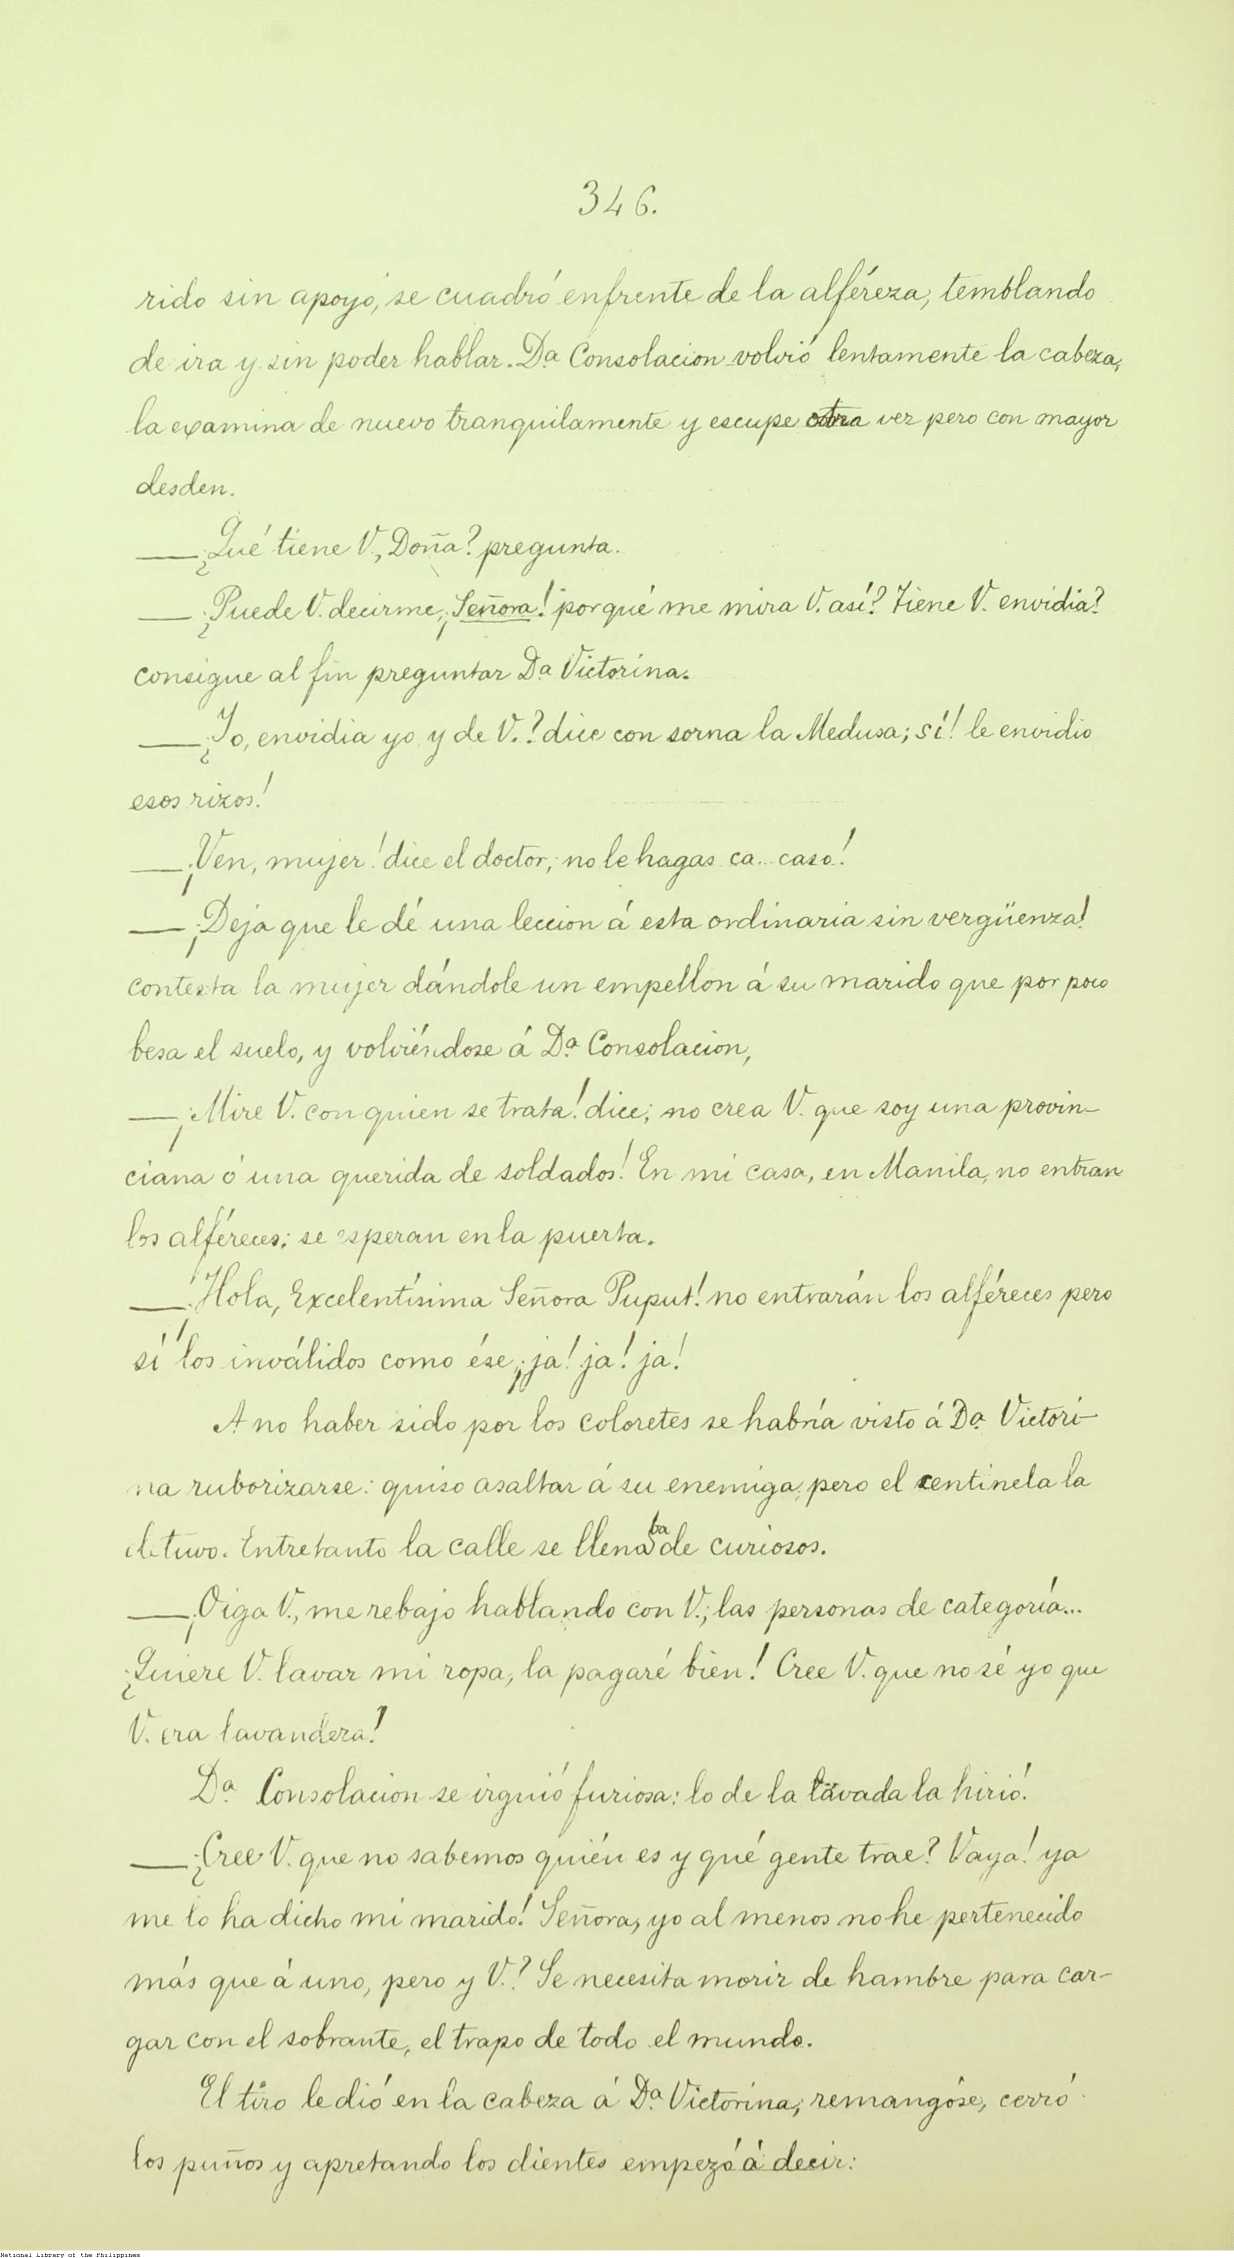 346.
rido sin apoyo, se cuadró enfrente de la alféreza, temblando
de ira y sin poder hablar. Dª Consolacion volvió lentamente la cabeza,
la examina de nuevo tranquilamente y escupe otra vez pero con mayor
desden.
— ¿Qué tiene V., Doña? pregunta.
— ¿Puede V. decirme, ¡Señora! porqué me mira V. así? Tiene V. envidia?
consigue al fin preguntar Dª Victorina.
— ¿Yo, envidia yo y de V.? dice con sorna la Medusa; sí! le envidio
esos rizos!
— ¡Ven, mujer! dice el doctor; no le hagas ca... caso!
— ¡Deja que le dé una leccion á esta ordinaria sin vergüenza!
contesta la mujer dándole un empellon á su marido que por poco
besa el suelo, y volviéndose á Dª Consolacion,
— ¡Mire V. con quien se trata! dice; no crea V. que soy una provin-
ciana ó una querida de soldados! En mi casa, en Manila, no entran
los alféreces; se esperan en la puerta.
— ¡Hola, Excelentísima Señora Puput! no entrarán los alféreces pero
sí los inválidos como ése, ¡ja! ja! ja!
A no haber sido por los coloretes se habría visto á Dª Victori-
na ruborizarse: quiso asaltar á su enemiga, pero el centinela la
detuvo. Entretanto la calle se llenaba de curiosos.
— ¡Oiga V., me rebajo hablando con V.; las personas de categoría...
¿Quiere V. lavar mi ropa, la pagaré bien! Cree V. que no sé yo que
V. era lavandera!
Dª Consolacion se irguió furiosa: lo de la lavada la hirió.
— ¿Cree V. que no sabemos quién es y qué gente trae? Vaya! ya
me lo ha dicho mi marido! Señora, yo al menos no he pertenecido
más que á uno, pero y V.? Se necesita morir de hambre para car-
gar con el sobrante, el trapo de todo el mundo.
El tiro le dió en la cabeza á Dª Victorina; remangóse, cerró
los puños y apretando los dientes empezó á decir:
National Library of the Philippines